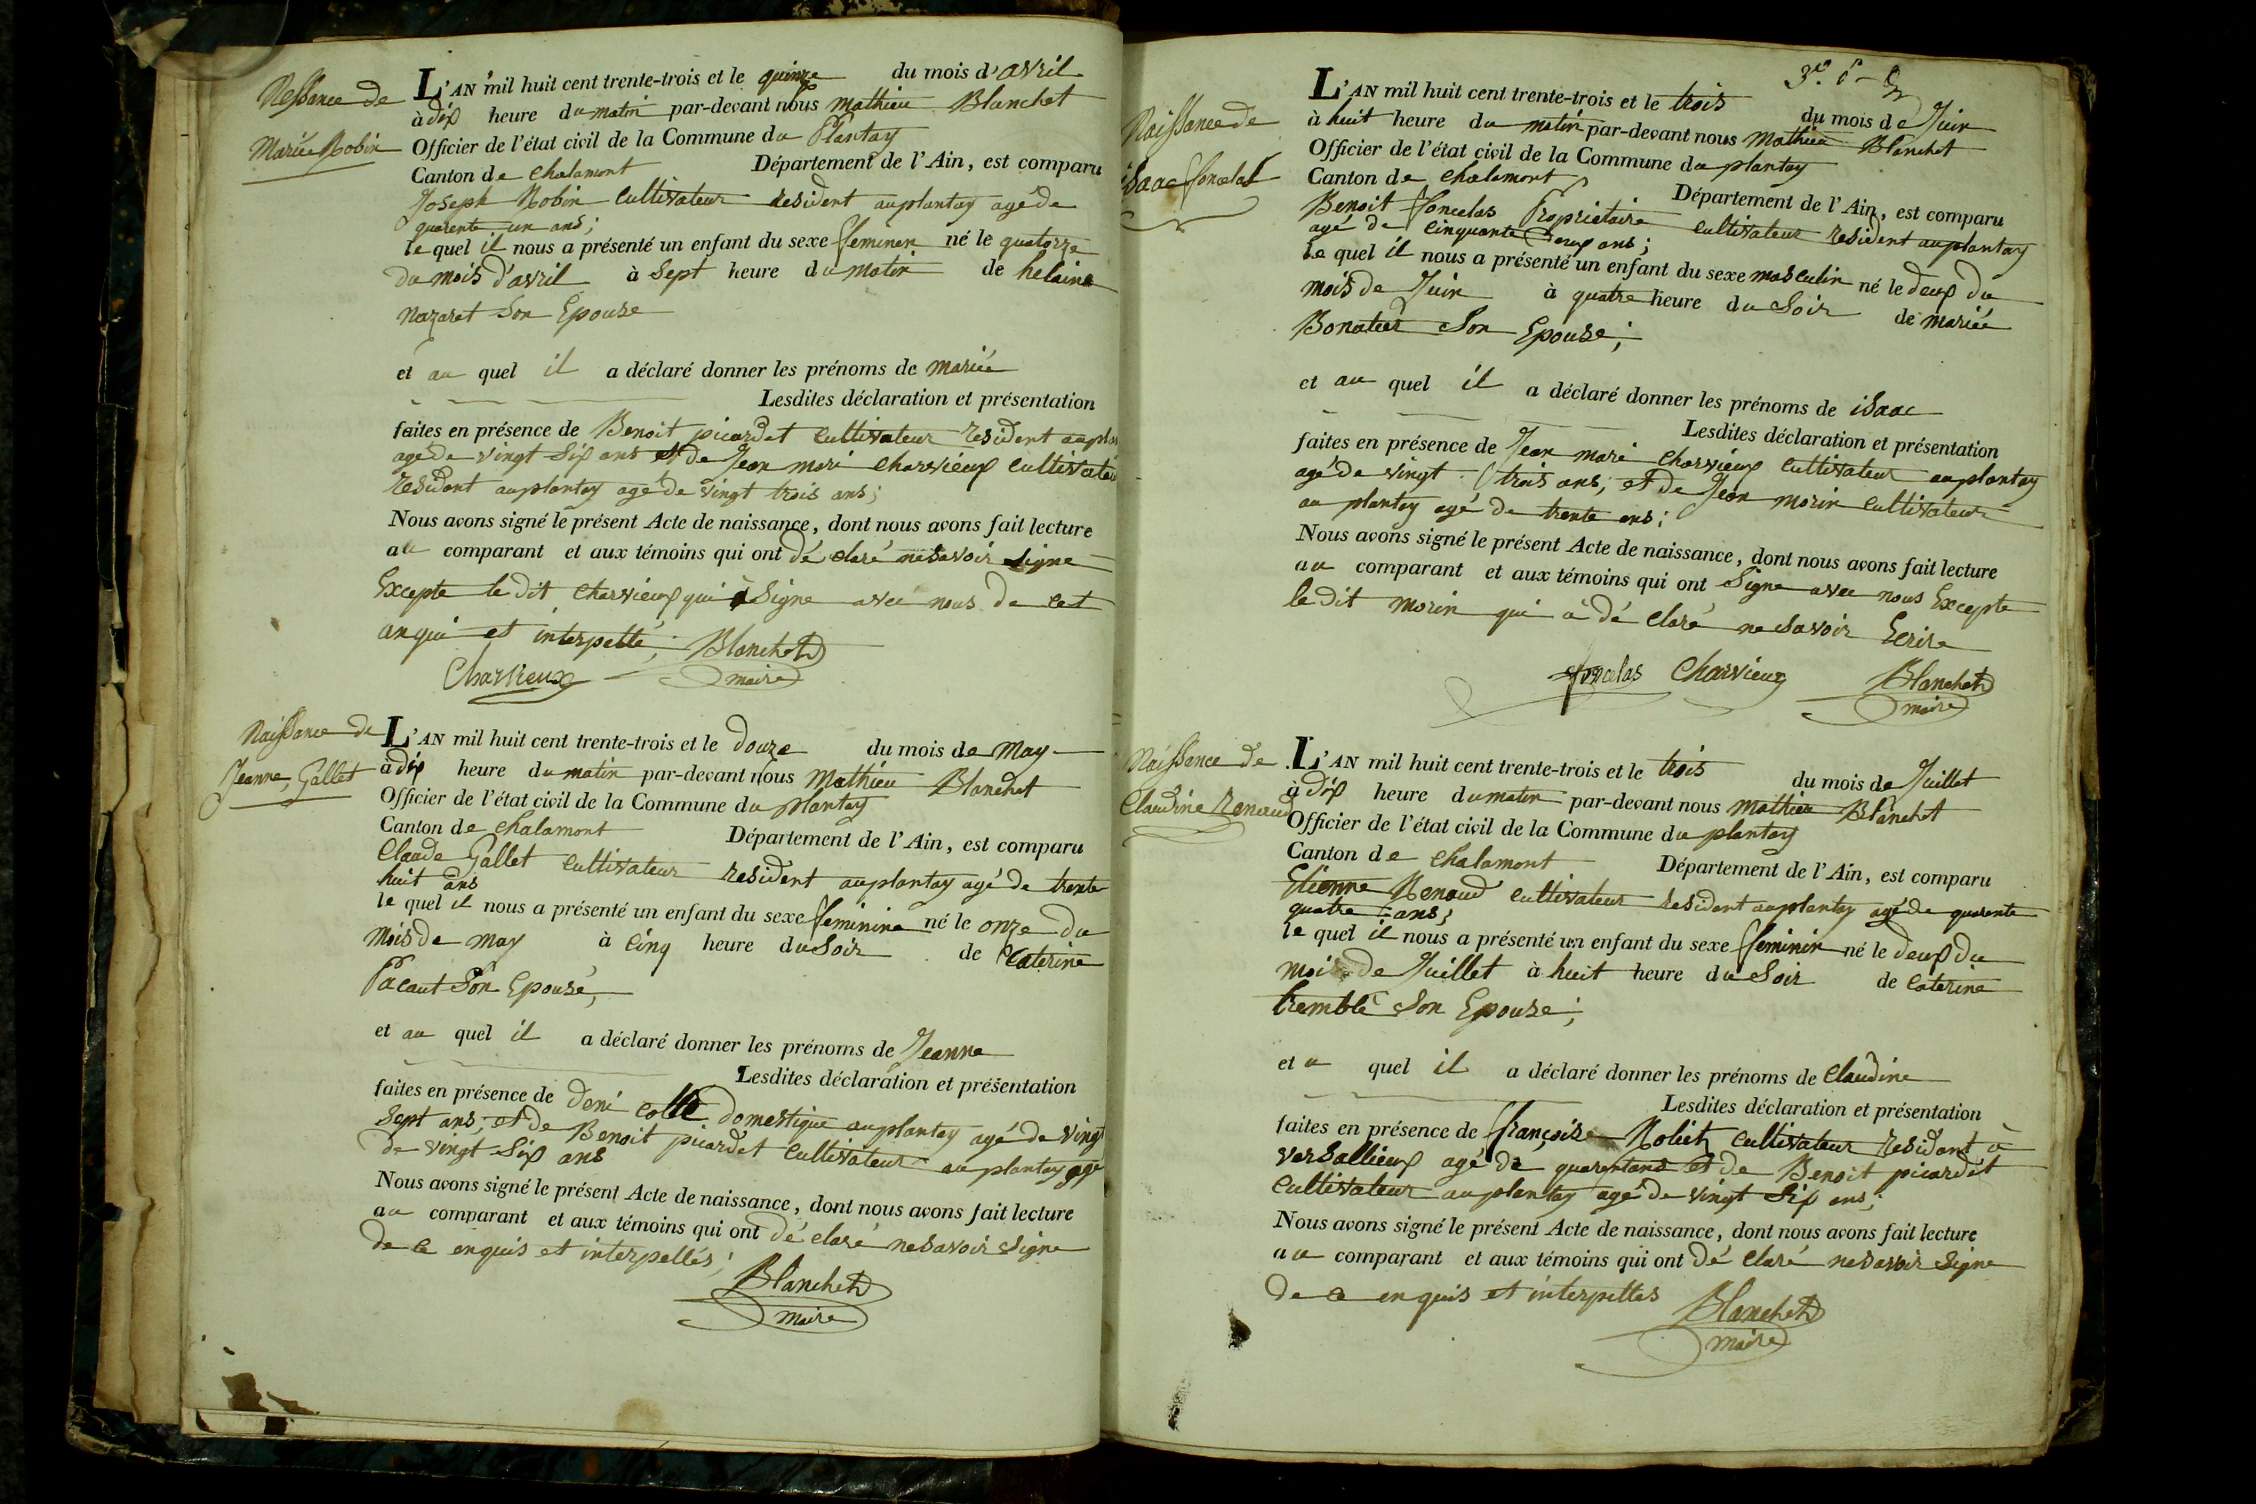 Nessance de
Mariée Robin
L'AN mil huit cent trente-trois et le quinze du mois d'avril
à dix heure du matin par-devant nous mathieu Blanchet
Officier de l'état civil de la Commune du Plantay
Canton de chalamont Département de l'Ain, est comparu
Joseph Robin cultivateur resident auplantay agé de
quarente un ans;
le quel il nous a présenté un enfant du sexe feminen né le quatorze
du mois d'avril à sept heure du matin de helaine
nazaret son Epouse
et au quel il a déclaré donner les prénoms de mariée
Lesdites déclaration et présentation
faites en présence de Benoit picardet cultivateur resident auplan
agé de vingt six ans et de Jean mari charvieux cultivateur
resident auplantay agé de vingt trois ans;
Nous avons signé le présent Acte de naissance, dont nous avons fait lecture
au comparant et aux témoins qui ont dé claré nesavoir signe
Excepte le dit charvieux qui à signe avec nous de cet
anqui et interpellé; Blanchet
Charvieux maire
Naissance de
Jeanne Gallet
L'AN mil huit cent trente-trois et le douze du mois de may
à dix heure du matin par-devant nous mathieu Blanchet
Officier de l'état civil de la Commune du plantay
Canton de chalamont Département de l'Ain, est comparu
Claude Gallet cultivateur resident auplantay agé de trente
huit ans
le quel il nous a présenté un enfant du sexe feminine né le onze du
mois de may à cinq heure du soir de caterine
Pacaut son Epouse,
et au quel il a déclaré donner les prénoms de Jeanne
Lesdites déclaration et présentation
faites en présence de deni colle domestique auplantay agé de vingt
sept ans, et de Benoit picardet cultivateur au plantay agé
de vingt six ans
Nous avons signé le présent Acte de naissance, dont nous avons fait lecture
au comparant et aux témoins qui ont dé claré nesavoir signe
de ce enquis et interpellés;
Blanchet
maire
Naissance de
isaac foncelas
L'AN mil huit cent trente-trois et le trois du mois de Juin
à huit heure du matin par-devant nous mathieu Blanchet
Officier de l'état civil de la Commune du plantay
Canton de chalamont Département de l'Ain, est comparu
Benoit foncelas Propriétaire cultivateur resident auplantay
agé de cinquante deux ans;
le quel il nous a présenté un enfant du sexe masculin né le deux du
mois de Juin à quatre heure du soir de mariée
Bonateur son Epouse;
et au quel il a déclaré donner les prénoms de isaac
Lesdites déclaration et présentation
faites en présence de Jean mari charvieux cultivateur auplantay
agé de vingt trois ans; et de Jean morin cultivateur
au plantay agé de trente ans;
Nous avons signé le présent Acte de naissance, dont nous avons fait lecture
au comparant et aux témoins qui ont signe avec nous Excepte
le dit morin qui à dé claré ne savoir Ecrire
foncelas Charvieux Blanchet
maire
Naissance de
Claudine Renaud
L'AN mil huit cent trente-trois et le trois du mois de Juillet
à dix heure du matin par-devant nous mathieu Blanchet
Officier de l'état civil de la Commune du plantay
Canton de chalamont Département de l'Ain, est comparu
Etienne Renaud cultivateur resident auplantay agé de quarente
quatre ans;
le quel il nous a présenté un enfant du sexe feminin né le deux du
mois de Juillet à huit heure du soir de caterine
tremble son Epouse;
et a quel il a déclaré donner les prénoms de Claudine
Lesdites déclaration et présentation
faites en présence de françoise Roliet cultivateur residant à
versallieux agé de quarentans et de Benoit picardet
cultivateur auplantay agé de vingt six ans;
Nous avons signé le présent Acte de naissance, dont nous avons fait lecture
au comparant et aux témoins qui ont dé claré nesavoir signe
de ce en quis et interpellés Blanchet
maire